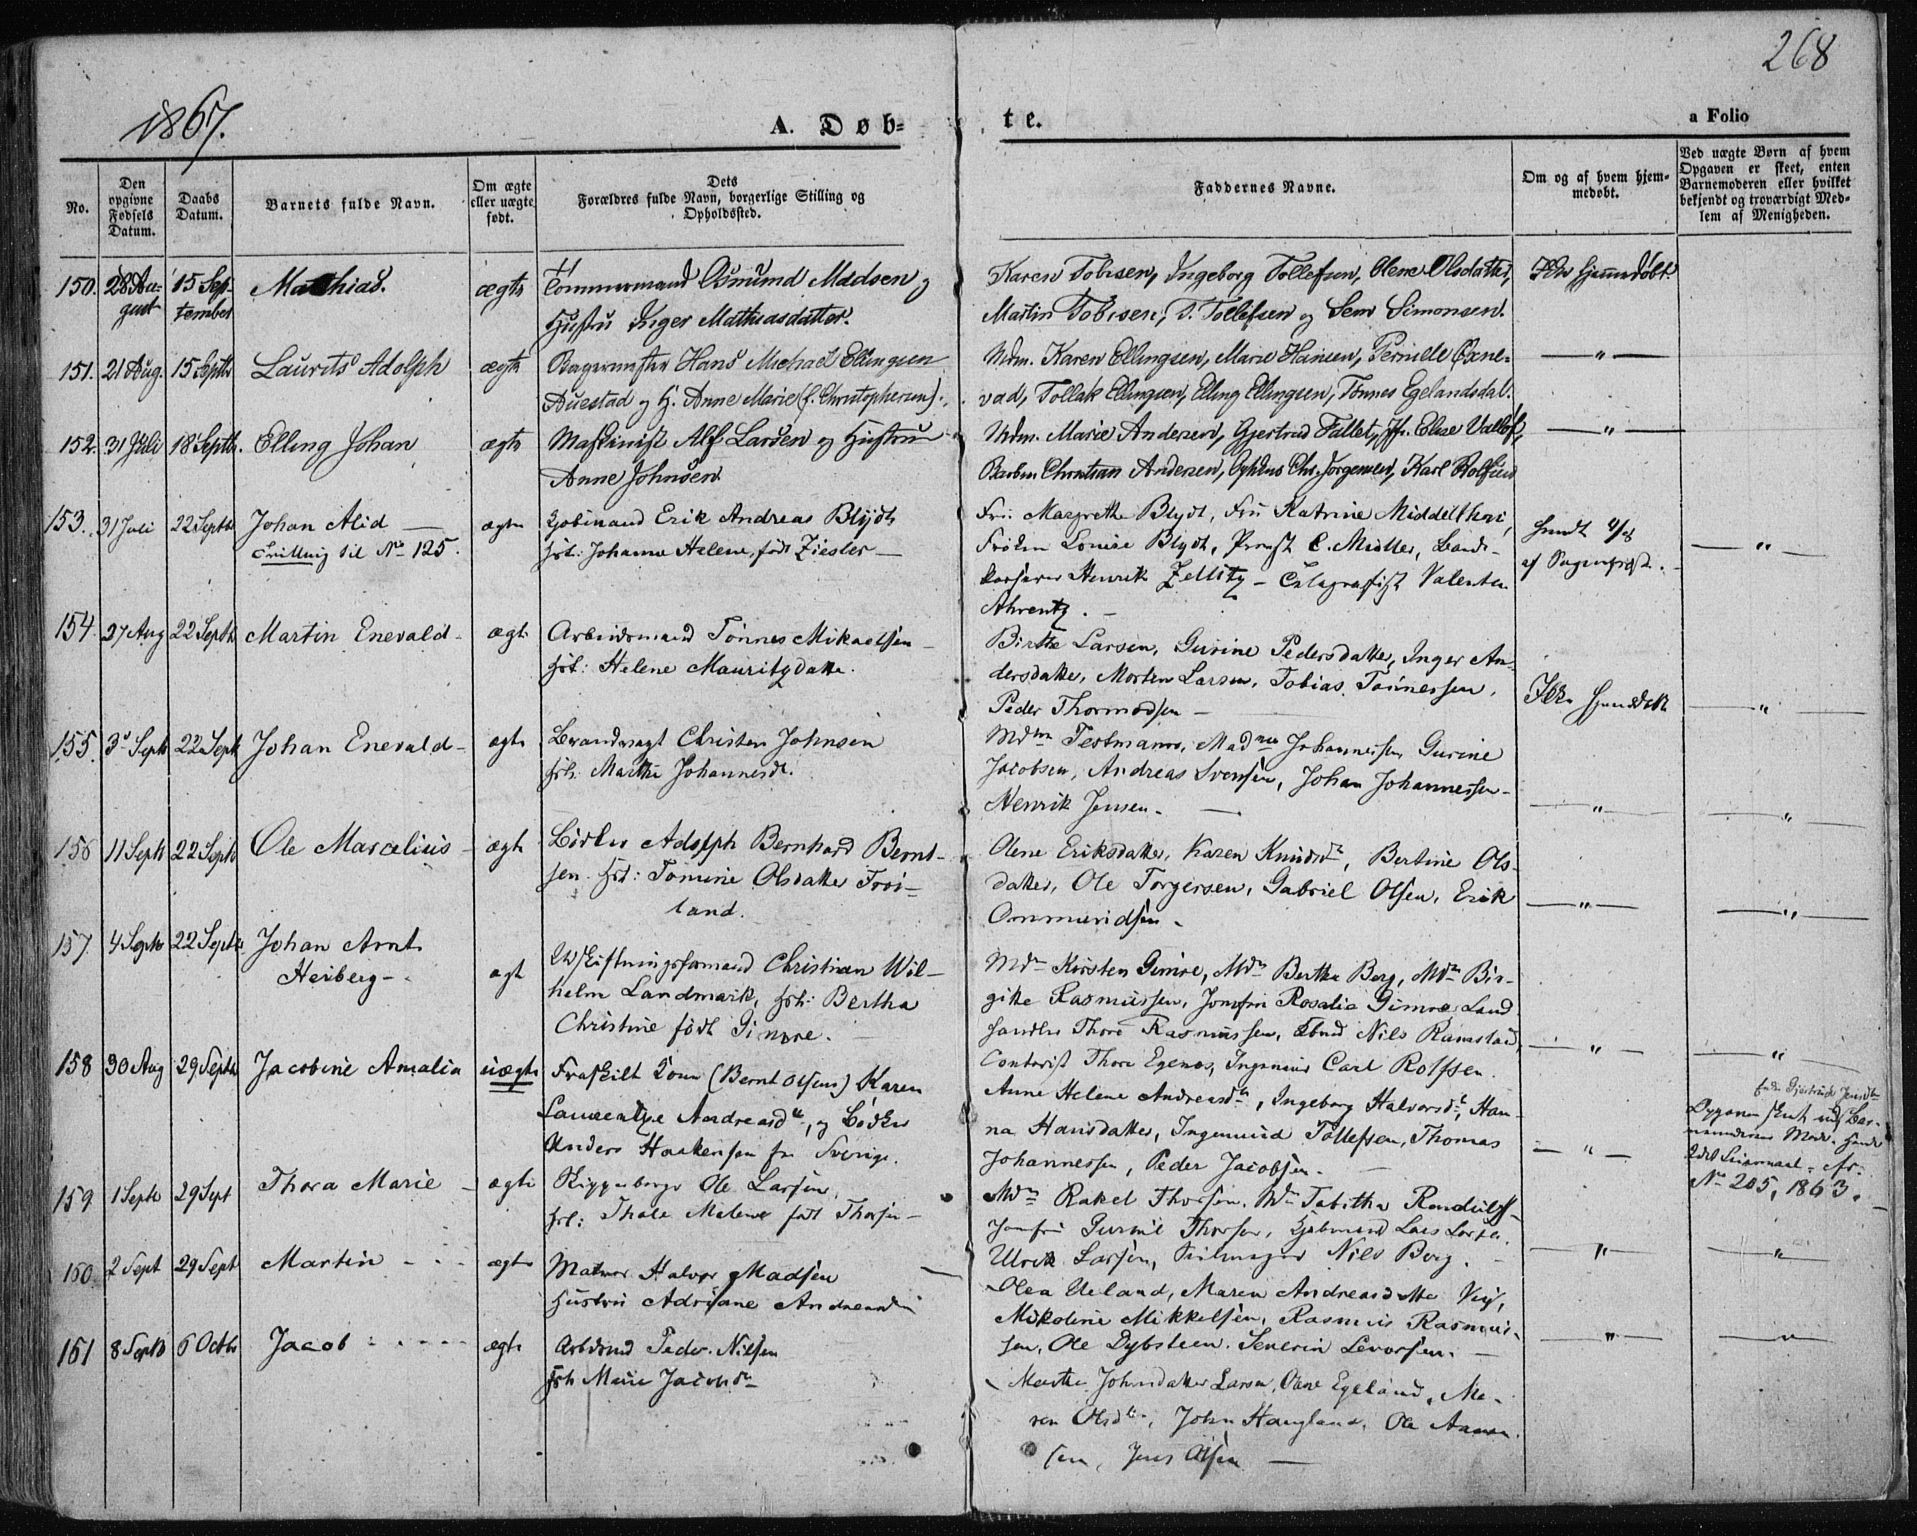 268
1867.
A. Døb-
te.
a Folio
No.
Den opgivne Fødsels Datum.
Daabs Datum.
Barnets fulde Navn.
Om ægte eller uægte født.
Dets Forældres fulde Navn, borgerlige Stilling og Opholdssted.
Faddernes Navne.
Om og af hvem hjem-
medøbt.
Ved uægte Børn af hvem
Opgaven er skeet, enten
Barnemoderen eller hvilket
bekjendt og troværdigt Med-
lem af Menigheden.
150. 28 Au- 15 Sep- Mathias. ægte Tømmermand Osmund Madsen og
gust tember Hustru Inger Mathiasdatter.
Karen Tobisen, Ingeborg Tollefsen, Olene Olsdatter, Ikke hjemmedøbt.
Martin Tobisen, T. Tollefsen og Sem Simonsen.
151. 21 Aug. 15 Septb Laurits Adolph ægte Bagermester Hans Michael Ellingsen
Auestad og H. Anne Marie (f. Christophersen).
Mdm. Karen Ellingsen, Marie Hansen, Pernille Oxne- — " —
vad, Tollak Ellingsen, Elling Ellingsen, Tønnes Egelandsdal.
152. 31 Juli 18 Septb. Elling Johan ægte Maskinist Alf Larsen og Hustru
Anne Johnsen
Mdm. Marie Andersen, Gjertrud Fallet, Jfr. Elise Valløe, — " —
Christian Andersen, Chr. Jørgensen, Karl Rolfsen
153. 31 Juli 22 Septb Johan Alid — ægte Kjøbmand Erik Andreas Blydt
Tvilling til No 125. hst: Johanne Helene, født Ziesler —
Fru Margrethe Blydt, Fru Katrine Middelthon,
Frøken Louise Blydt, Provst C. Müller, — " —
Henrik Zellitz — Telegrafist Valentin
Ahrentz. —
154. 27 Aug 22 Septb Martin Enevald - ægte Arbeidsmand Tönnes Mikaelsen —
hst: Helene Mauritzdatter.
Birthe Larsen, Gurine Pedersdatter, Inger An-
dersdatter, Morten Larsen, Tobias Tönnessen,
Peder Thormodsen — Ikke hjemdøbt — " —
155. 3 Septb 22 Sept Johan Enevald - ægte Brandvagt Christen Johnsen
hst: Marthe Johannesd.
Mdm Testmann, Madme Johannessen, Gurine
Jacobsen, Andreas Svensen, Johan Johannessen -
Henrik Jensen. — — " — — " —
156 11 Septb 22 Septb Ole Marcelius - ægte Bödker Adolph Bernhard Bernt-
sen. hst: Tomine Olsdatter Fröi-
land.
Olene Eriksdatter, Karen Knudsd, Bertine Ols-
datter, Ole Torgersen, Gabriel Olsen, Erik
Ommundsen — — " — — " —
157. 4 Septb 22 Septb Johan Arnt
Heiberg - ægt Udskiftningsformand Christian Wil-
helm Landmark, hst: Bertha
Christine født Gimre. —
Mdm Kirsten Gimre, Mdm Bertha Berg, Mdm Bir-
gitte Rasmussen, Jomfru Rosalie Gimre, Land
handler Thore Rasmussen, Nils Ramstad,
Contorist Thore Egenes, Ingeniør Carl Rolfsen. — " — — " —
158 30 Aug 29 Septb Jacobine Amalia uægte Fraskilt Kone (Bernt Olsens) Karen
Laurentze Andreasdtr, og Bødker
Anders Haakensen fra Sverige.
Anne Helene Andreasdtr, Ingeborg Halvorsd, Han-
na Hansdatter, Ingemund Tollefsen, Thomas
Johannessen, Peder Jacobsen. — — " —
Opgaven
No 205, 1863.
159 1 Septb 29 Sept Thora Marie - ægte Skipsbygger Ole Larsen,
hst: Thale Malene født Thorsen —
Mdm Rakel Thorsen, Mdm Tabitha
Jomfru Gurine Thorsen, Kjøbmand Lars Larsen,
Ulrik Larsen, Nils Berg. — — " — — " —
160 2 Sept 29 Sept Martin - - - ægte Matros Halvor Madsen
Hustru Adriane Andreasd
Olea Ueland, Maren Andreasdatter
Mikoline Mikkelsen, Rasmus Rasmus-
sen, Ole Dybsteen, Severin Levorsen. — — " — — " —
161 8 Septb 6 Octbr Jacob - - - - ægte Arbdmd Peder Nilsen
hst. Marie Jacobsd
Marthe Johnsdatter Larsen, Olene Egeland, Ma-
ren Olsdtr, John Haugland, Ole Aanen
sen, Jens Olsen —